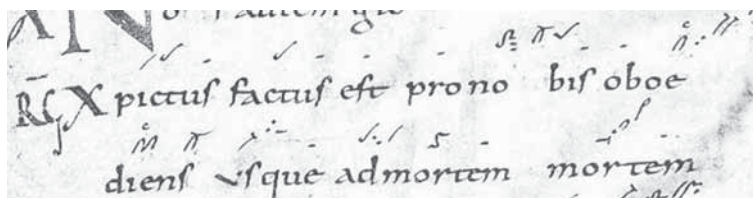 autem glo
RG Xpictus factus est pro no bis oboe
diens vsque admortem mortem